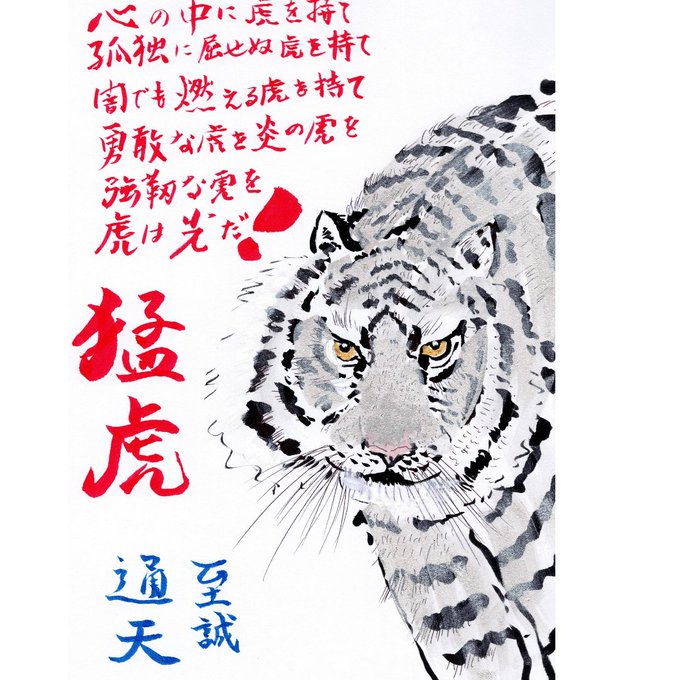 心の中に虎を持て
孤独に屈せぬ虎を持て
闇でも燃える虎を持て
勇敢な虎を炎の虎を
強靭な虎を
虎は光だ!
猛虎
至誠
通天